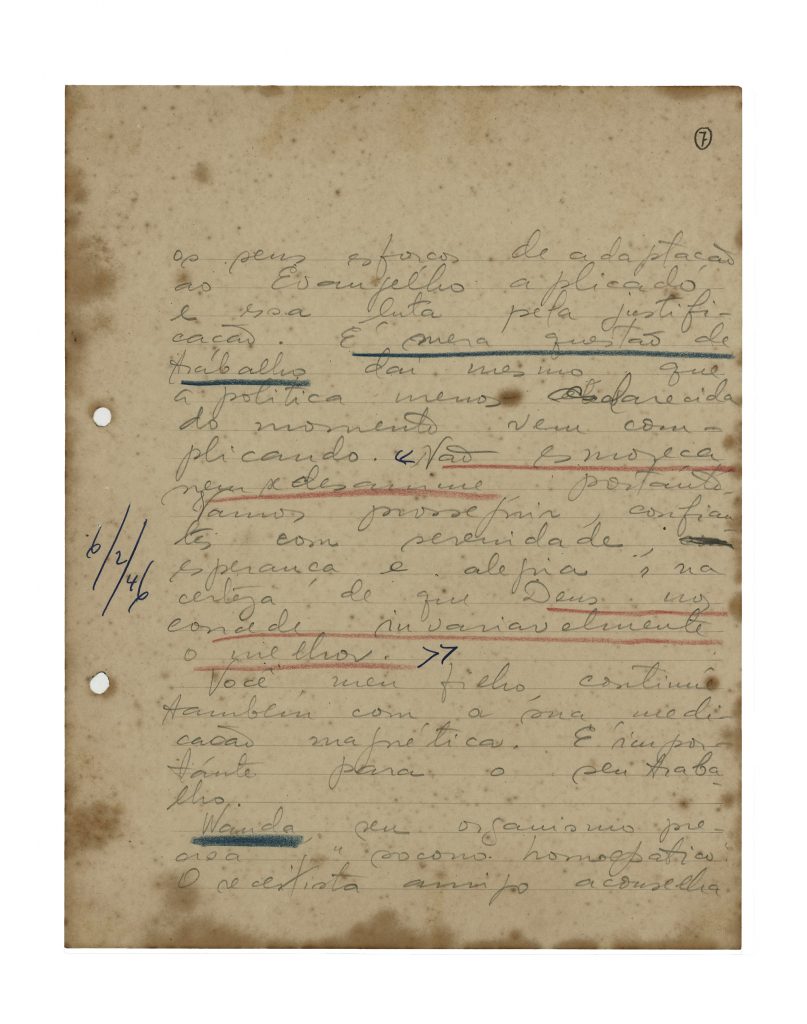 7
os seus esforços de adaptação
ao Evangelho aplicado
e essa luta pela justifi-
cação. É mera questão de
trabalho das mesmo que
a politica menos esclarecida
do momento vem com-
plicando. "Não esmoreça
nem desanime portanto.
Vamos prosseguir, confian
tes com serenidade,
esperança e alegria, na
certeza de que Deus nos
concede invariavelmente
o melhor. "
6/2/46
Você, meu filho, continue
tambem com a sua medi-
cação magnética. É impor-
tante para o seu traba-
lho.
Wanda, seu organismo pre-
cisa socorro homeopatico.
O receitista amigo aconselha